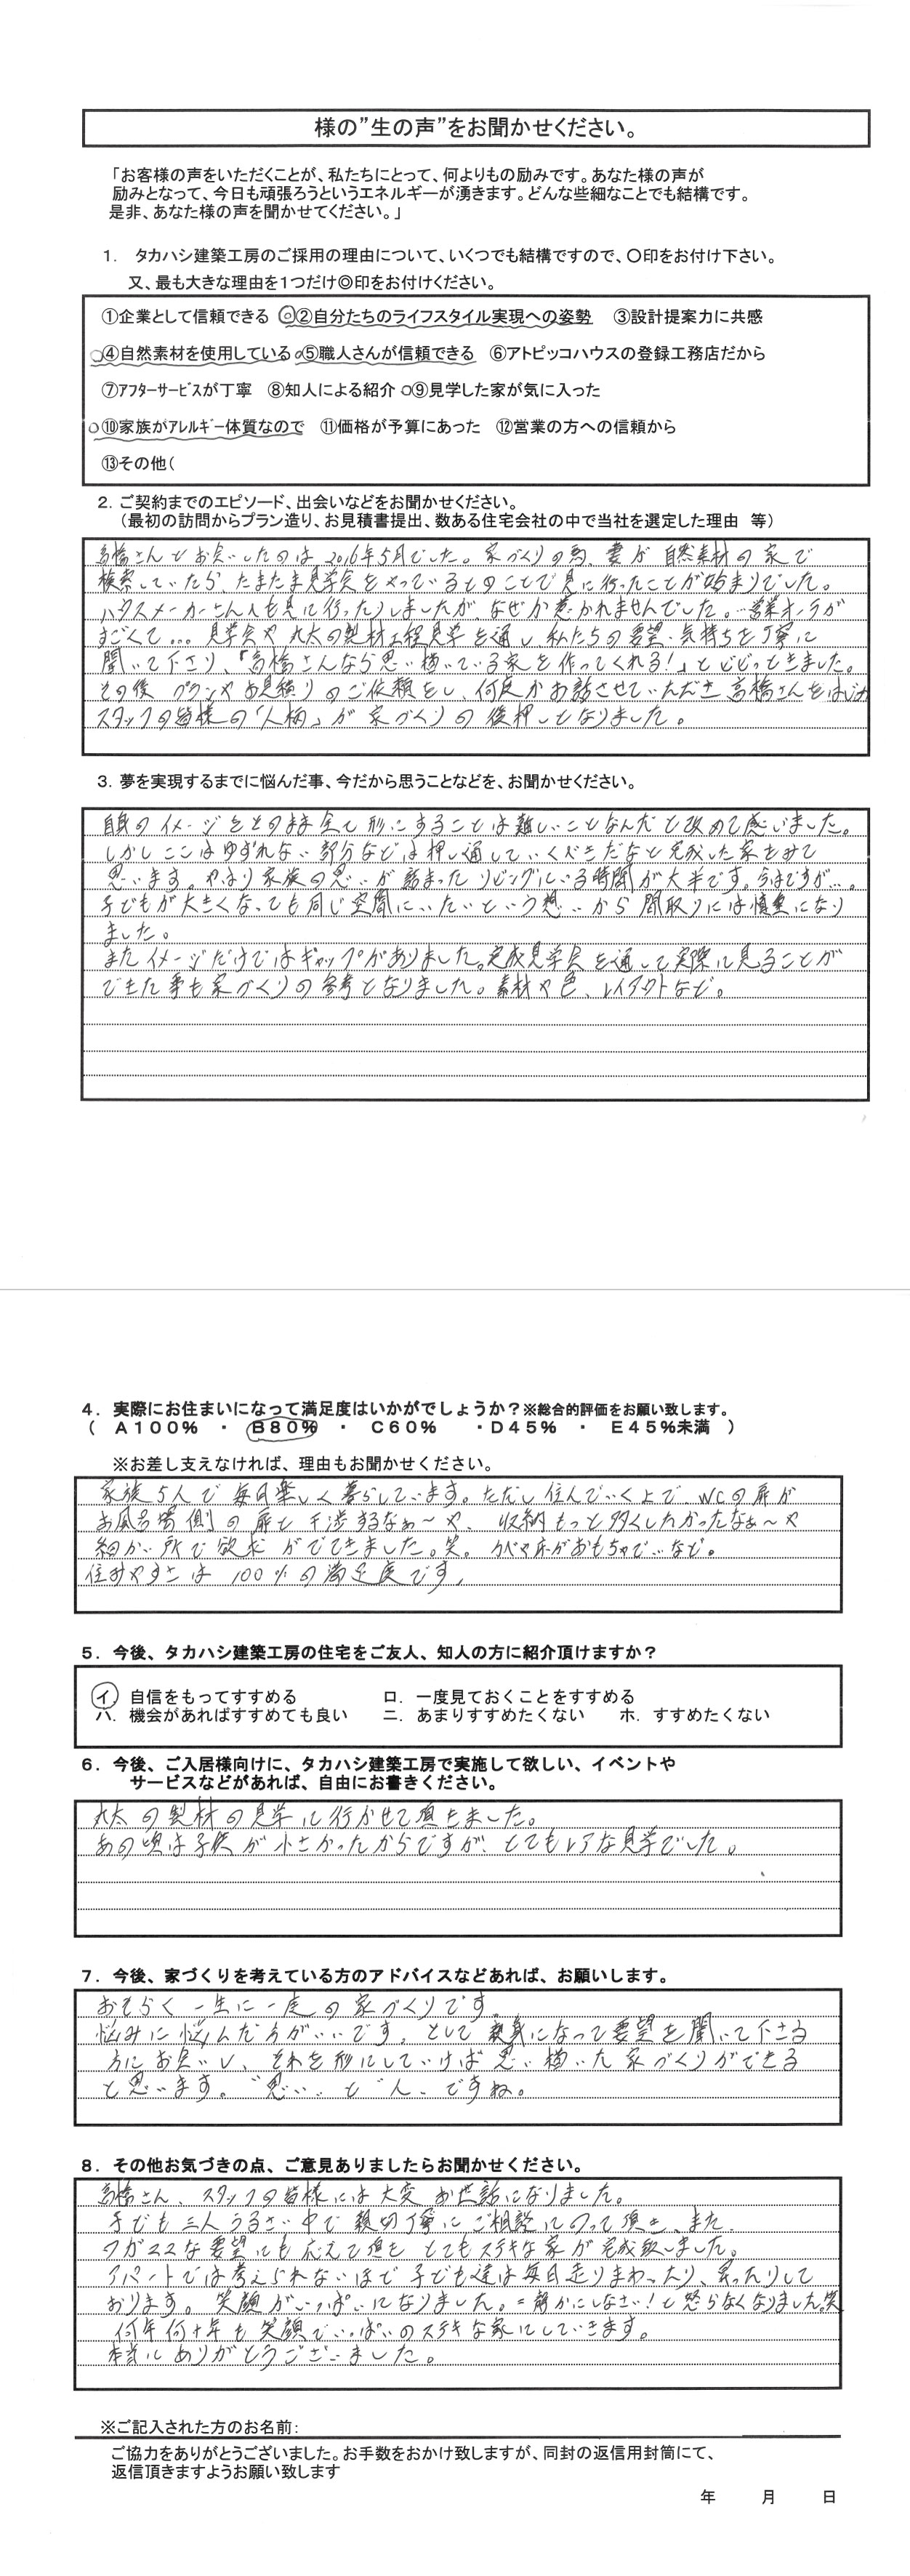 様の”生の声”をお聞かせください。
「お客様の声をいただくことが、私たちにとって、何よりもの励みです。あなた様の声が
励みとなって、今日も頑張ろうというエネルギーが湧きます。どんな些細なことでも結構です。
是非、あなた様の声を聞かせてください。」
1. タカハシ建築工房のご採用の理由について、いくつでも結構ですので、〇印をお付け下さい。
又、最も大きな理由を1つだけ◎印をお付けください。
①企業として信頼できる ◎②自分たちのライフスタイル実現への姿勢 ③設計提案力に共感
○④自然素材を使用している ○⑤職人さんが信頼できる ⑥アトピッコハウスの登録工務店だから
⑦アフターサービスが丁寧 ⑧知人による紹介 ○⑨見学した家が気に入った
○⑩家族がアレルギー体質なので ⑪価格が予算にあった ⑫営業の方への信頼から
⑬その他(
2. ご契約までのエピソード、出会いなどをお聞かせください。
(最初の訪問からプラン造り、お見積書提出、数ある住宅会社の中で当社を選定した理由 等)
高橋さんとお会いしたのは2016年5月でした。家づくりの為、妻が自然素材の家で
検索していたら、たまたま見学会をやっているとのことで見に行ったことが始まりでした。
ハウスメーカーさんへも見に行ったりしましたがなぜか惹かれませんでした。…営業オーラが
すごくて… 見学会や丸太の製材工程見学を通し私たちの要望・気持ちを丁寧に
聞いて下さり、「高橋さんなら思い描いている家を作ってくれる!」とビビっときました。
その後プランやお見積りのご依頼をし、何度かお話させていただき高橋さんをはじめ
スタッフの皆様の「人柄」が家づくりの後押しとなりました。
3. 夢を実現するまでに悩んだ事、今だから思うことなどを、お聞かせください。
自身のイメージをそのまま全て形にすることは難しいことなんだと改めて感じました。
しかしここはゆずれない部分などは押し通していくべきだなと完成した家をみて
思います。やはり家族の思いが詰まったリビングにいる時間が大半です。今はですが…。
子どもが大きくなっても同じ空間にいたいという想いから間取りには慎重になり
ました。
またイメージだけではギャップがありました。完成見学会を通して実際に見ることが
できた事も家づくりの参考となりました。素材や色、レイアウトなど。
4. 実際にお住まいになって満足度はいかがでしょうか?※総合的評価をお願い致します。
( A100% ・ B80% ・ C60% ・D45% ・ E45%未満 )
※お差し支えなければ、理由もお聞かせください。
家族5人で毎日楽しく暮らしています。ただし住んでいく上でWCの扉が
お風呂場側の扉と干渉するなぁ～や、収納もっと多くしたかったなぁ～や
細かい所で欲求がでてきました。笑。カベや床がおもちゃで…など。
住みやすさは100%の満足度です。
5. 今後、タカハシ建築工房の住宅をご友人、知人の方に紹介頂けますか?
イ. 自信をもってすすめる ロ. 一度見ておくことをすすめる
ハ. 機会があればすすめても良い ニ. あまりすすめたくない ホ. すすめたくない
6. 今後、ご入居様向けに、タカハシ建築工房で実施して欲しい、イベントや
サービスなどがあれば、自由にお書きください。
丸太の製材の見学に行かせて頂きました。
あの頃は子供が小さかったからですが、とてもレアな見学でした。
7. 今後、家づくりを考えている方のアドバイスなどあれば、お願いします。
おそらく一生に一度の家づくりです。
悩みに悩んだ方がいいです。そして親身になって要望を聞いて下さる
方にお会いし、それを形にしていけば思い描いた家づくりができる
と思います。“思い”と“人”ですね。
8. その他お気づきの点、ご意見ありましたらお聞かせください。
高橋さん、スタッフの皆様には大変お世話になりました。
子ども三人うるさい中で親切丁寧にご相談にのって頂き、また、
ワガママな要望にも応えて頂きとてもステキな家が完成致しました。
アパートでは考えられないほど子ども達は毎日走りまわったり、笑ったりして
おります。笑顔がいっぱいになりました。=静かにしなさい!と怒らなくなりました。笑
何年何十年も笑顔でいっぱいのステキな家にしていきます。
本当にありがとうございました。
※ご記入された方のお名前:
ご協力をありがとうございました。お手数をおかけ致しますが、同封の返信用封筒にて、
返信頂きますようお願い致します
年 月 日